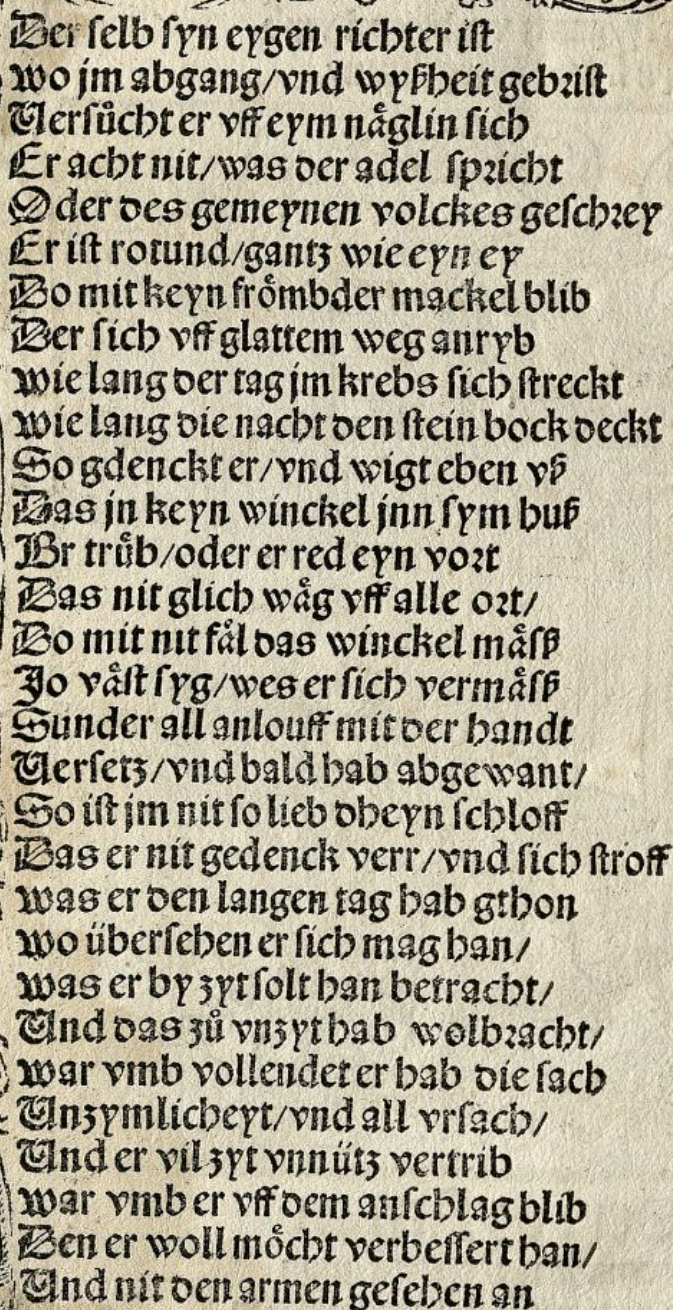 Der selb syn eygen richter ist
wo jm abgang/vnd wyßheit gebrist
Versůcht er vff eym någlin sich
Er acht nit/was der adel spricht
Oder des gemeynen volckes geschrey
Er ist rotund/gantz wie eyn ey
Do mit keyn frömbder mackel blib
Der sich vff glattem weg anryb
wie lang der tag jm krebs sich streckt
wie lang die nacht den steinbock deckt
So gdenckt er/vnd wigt eben vß
Das jn keyn winckel jnn sym huß
Br trüb/oder er red eyn vort
Das nit glich wåg vff alle ort/
Do mit nit fål das winckel måsß
Jo våst syg/wes er sich vermåsß
Sunder all anlouff mit der handt
Versetz/vnd bald hab abgewant/
So ist jm nit so lieb dheyn schloff
Das er nit gedenck verr/vnd sich stroff
was er den langen tag hab gthon
wo übersehen er sich mag han/
was er by zyt solt han betracht/
Vnd das zů vnzyt hab wolbracht/
war vmb vollendet er hab die sach
Vnzymlicheyt/vnd all vrsach/
Vnd er vil zyt vnnütz vertrib
war vmb er vff dem anschlag blib
Den er woll möcht verbessert han/
Vnd nit den armen gesehen an